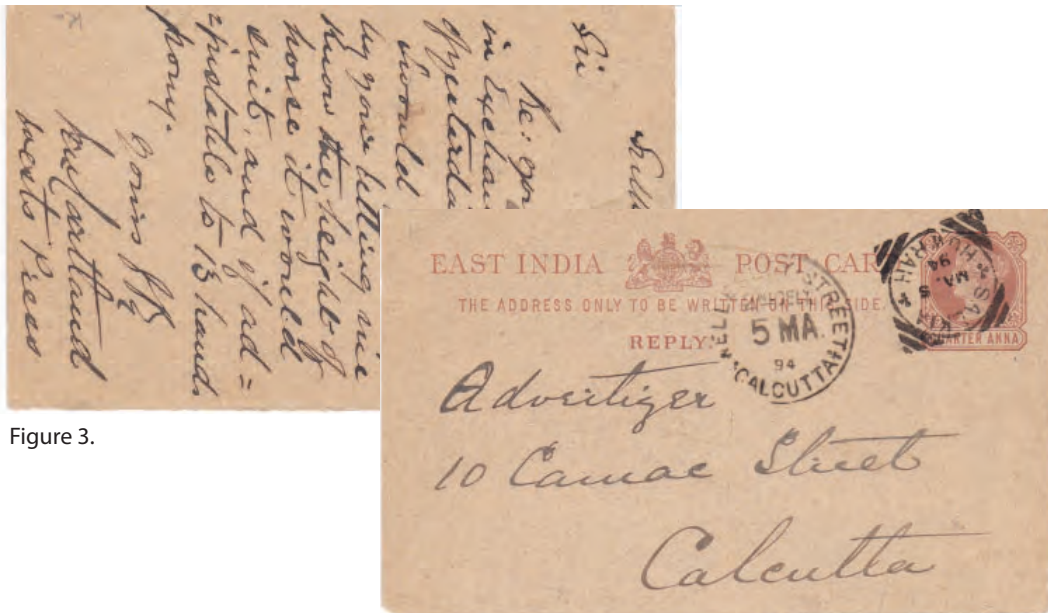 Sir
Re: your
in Exchan
of yesterda
I would
by your letting me
know the height of
horse it would
suit, and if ad=
=justable to 13 hands
pony.
Yours
Figure 3.
EAST INDIA POST CAR
THE ADDRESS ONLY TO BE WRITTEN ON THIS SIDE.
REPLY.
QUARTER ANNA
STREET
5 MA.
94
CALCUTTA
HOWRAH
MA. 5
94
Advertizer
10 Camac Street
Calcutta